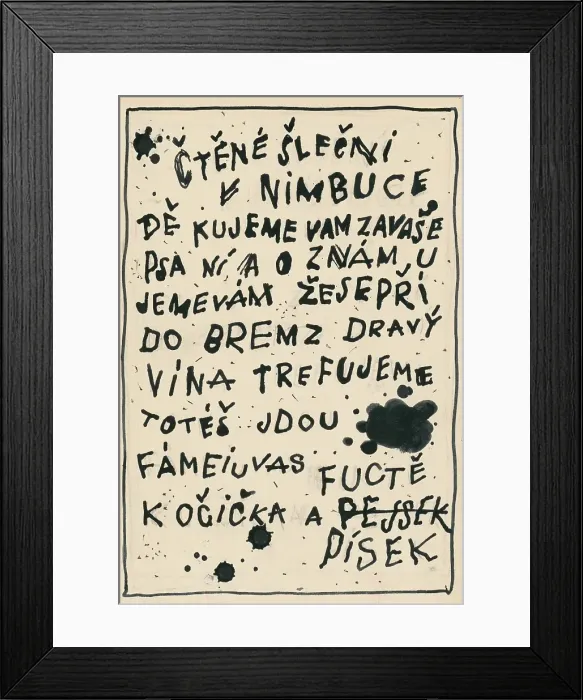 ČTĚNÉ ŠLEČNI
V NIMBUCE
DĚ KUJEME VAM ZAVAŠE
PSA NÍ A O ZNÁM,U
JEMEVÁM ŽESEPŘÍ
DO BREMZ DRAVÝ
VÍNA TREFUJEME
TOTÉŠ JDOU
FÁMEIUVAS
FUCTĚ
KOČIČKA A PEJSEK
PÍSEK